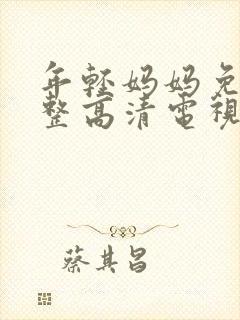 年輕媽媽免
整高清電視
蔡其昌